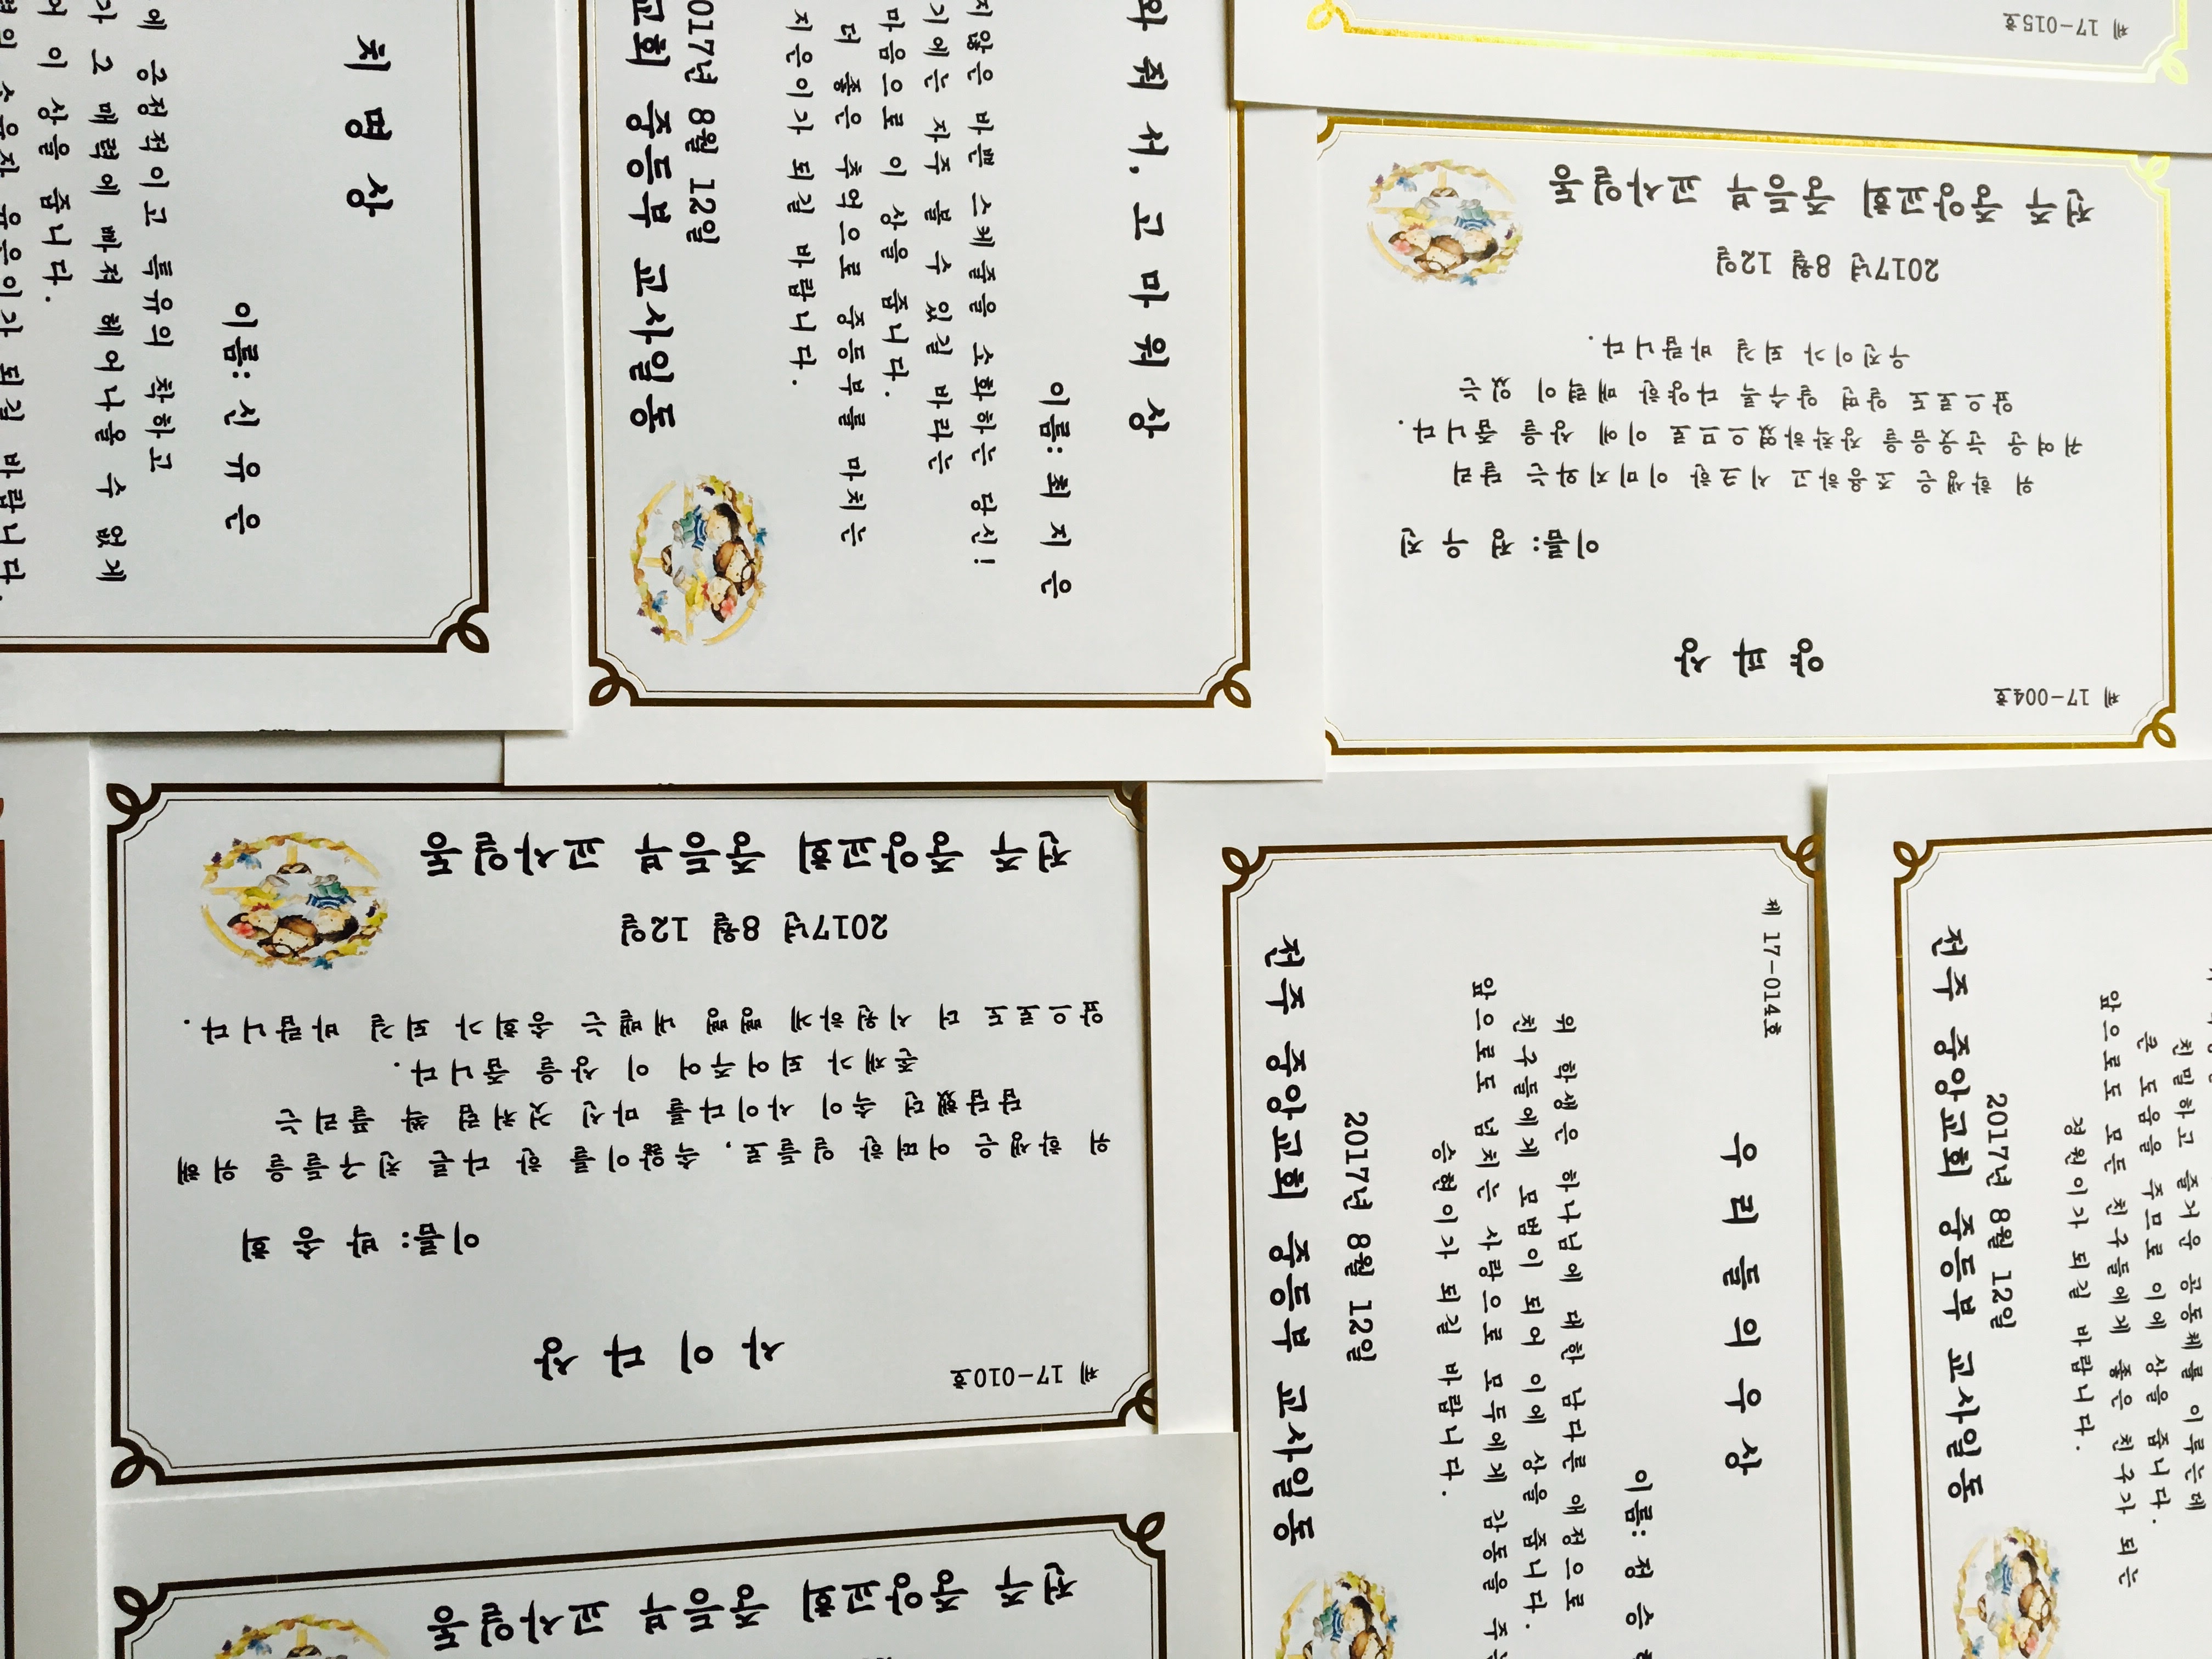 치명상
이름: 신유은
에 긍정적이고 특유의 착하고
가 그 매력에 빠져 헤어나올 수 없게
어 이 상을 줍니다.
유은이가 되길 바랍니다.
와줘서, 고마워상
이름: 최지은
지않은 바쁜 스케줄을 소화하는 당신!
기에는 자주 볼 수 있길 바라는
마음으로 이 상을 줍니다.
더 좋은 추억으로 중등부를 마치는
지은이가 되길 바랍니다.
2017년 8월 12일
교회 중등부 교사일동
제 17-015호
제 17-004호
양파상
이름: 정우진
위 학생은 조용하고 시크한 이미지와는 달리
귀여운 눈웃음을 장착하였으므로 이에 상을 줍니다.
앞으로도 알면 알수록 다양한 매력이 있는
우진이가 되길 바랍니다.
2017년 8월 12일
전주 중앙교회 중등부 교사일동
제 17-010호
사이다상
이름: 박송희
위 학생은 어떠한 일들로, 속앓이를 한 다른 친구들을 위해
답답했던 속이 사이다를 마신 것처럼 싹 풀리는
존재가 되어주어 이 상을 줍니다.
앞으로도 더 시원하게 뻥뻥 내뱉는 송희가 되길 바랍니다.
2017년 8월 12일
전주 중앙교회 중등부 교사일동
제 17-014호
우리들의우상
이름: 정승
위 학생은 하나님에 대한 남다른 애정으로
친구들에게 모범이 되어 이에 상을 줍니다.
앞으로도 넘치는 사랑으로 모두에게 감동을 주는
승현이가 되길 바랍니다.
2017년 8월 12일
전주 중앙교회 중등부 교사일동
친밀하고 즐거운 공동체를 이루는데
큰 도움을 주므로 이에 상을 줍니다.
앞으로도 모든 친구들에게 좋은 친구가 되는
정원이가 되길 바랍니다.
2017년 8월 12일
전주 중앙교회 중등부 교사일동
전주 중앙교회 중등부 교사일동